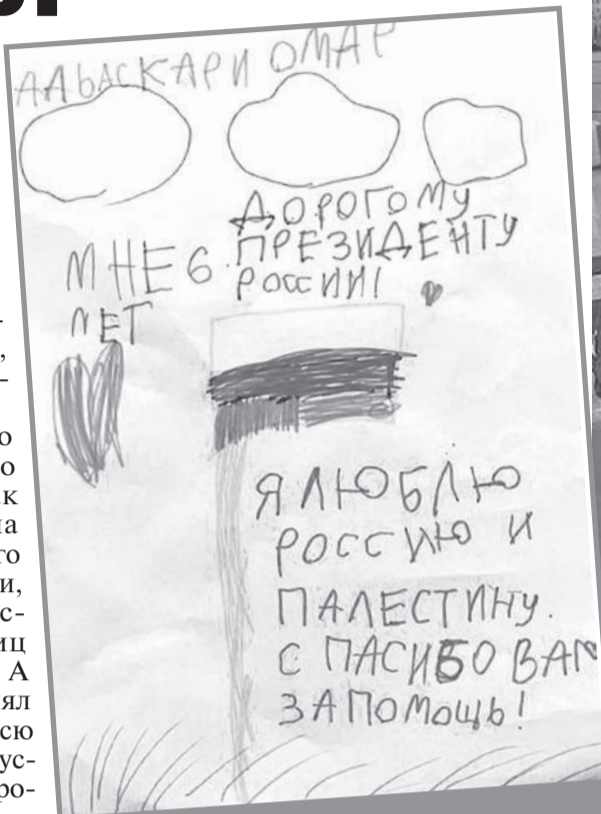 АЛЬАСКАРИ ОМАР
ДОРОГОМУ
ПРЕЗИДЕНТУ
РОССИИ!
МНЕ 6
ЛЕТ
Я ЛЮБЛЮ
РОССИЮ И
ПАЛЕСТИНУ.
С ПАСИБО ВАМ
ЗА ПОМОЩЬ!
и,
с-
иц
А
ял
сю
ус-
ро-